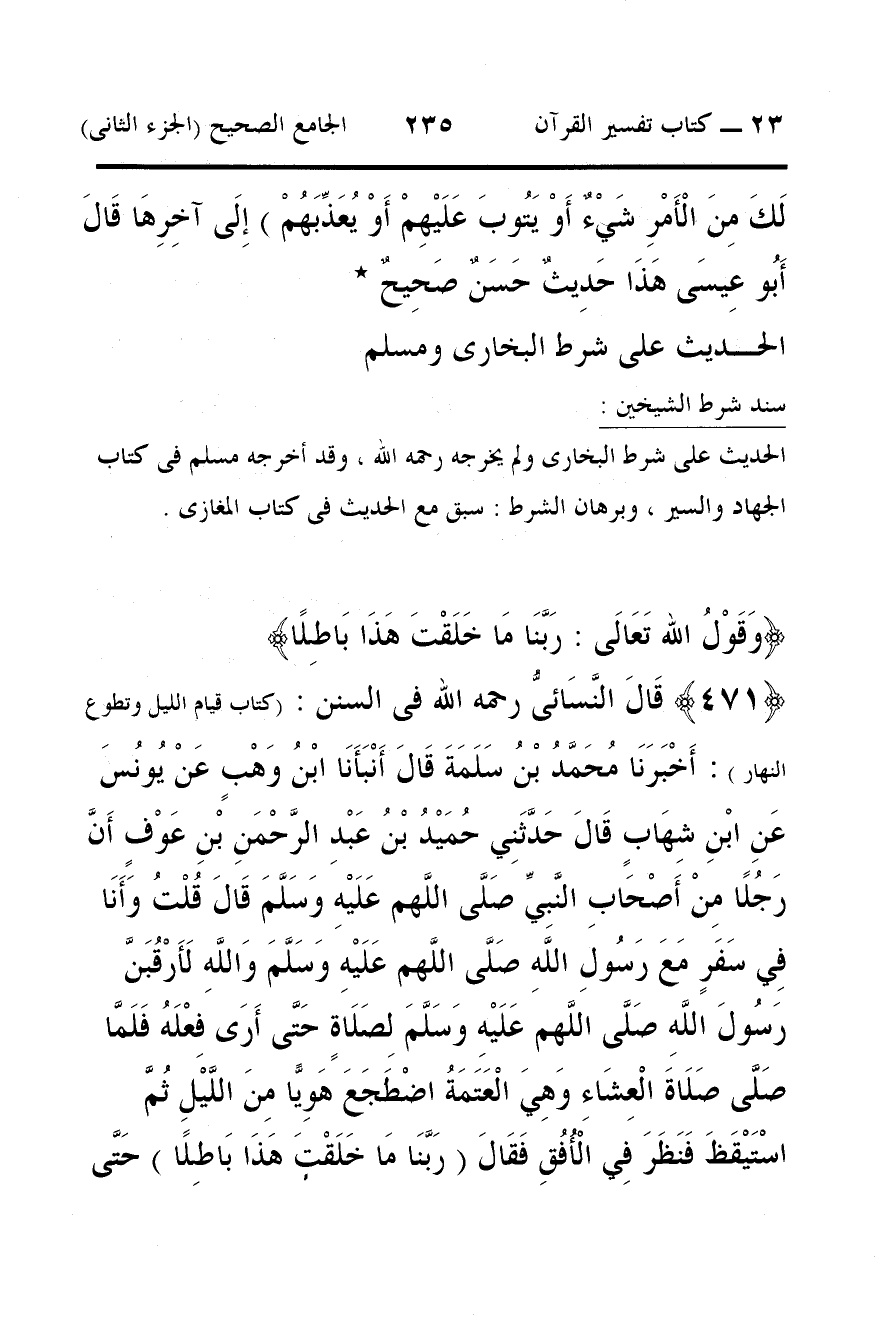 ٢٣ ــ كتاب تفسير القرآن ٢٣٥ الجامع الصحيح (الجزء الثانى)
لَكَ مِنَ الْأَمْرِ شَيْءٌ أَوْ يَتُوبَ عَلَيْهِمْ أَوْ يُعَذِّبَهُمْ ) إِلَى آخِرِهَا قَالَ
أَبُو عِيسَى هَذَا حَدِيثٌ حَسَنٌ صَحِيحٌ *
الحـــديث على شرط البخارى ومسلم
سند شرط الشيخين :
الحديث على شرط البخارى ولم يخرجه رحمه الله ، وقد أخرجه مسلم فى كتاب
الجهاد والسير ، وبرهان الشرط : سبق مع الحديث فى كتاب المغازى .
﴿وَقَوْلُ الله تَعَالَى : رَبَّنَا مَا خَلَقْتَ هَذَا بَاطِلًا﴾
﴿٤٧١﴾ قَالَ النَّسَائىُّ رحمه الله فى السنن : (كتاب قيام الليل وتطوع
النهار ) : أَخْبَرَنَا مُحَمَّدُ بْنُ سَلَمَةَ قَالَ أَنْبَأَنَا ابْنُ وَهْبٍ عَنْ يُونُسَ
عَنِ ابْنِ شِهَابٍ قَالَ حَدَّثَنِي حُمَيْدُ بْنُ عَبْدِ الرَّحْمَنِ بْنِ عَوْفٍ أَنَّ
رَجُلًا مِنْ أَصْحَابِ النَّبِيِّ صَلَّى اللَّهم عَلَيْهِ وَسَلَّمَ قَالَ قُلْتُ وَأَنَا
فِي سَفَرٍ مَعَ رَسُولِ اللَّهِ صَلَّى اللَّهم عَلَيْهِ وَسَلَّمَ وَاللَّهِ لَأَرْقُبَنَّ
رَسُولَ اللَّهِ صَلَّى اللَّهم عَلَيْهِ وَسَلَّمَ لِصَلَاةٍ حَتَّى أَرَى فِعْلَهُ فَلَمَّا
صَلَّى صَلَاةَ الْعِشَاءِ وَهِيَ الْعَتَمَةُ اضْطَجَعَ هَوِيًّا مِنَ اللَّيْلِ ثُمَّ
اسْتَيْقَظَ فَنَظَرَ فِي الْأُفُقِ فَقَالَ ( رَبَّنَا مَا خَلَقْتَ هَذَا بَاطِلًا ) حَتَّى